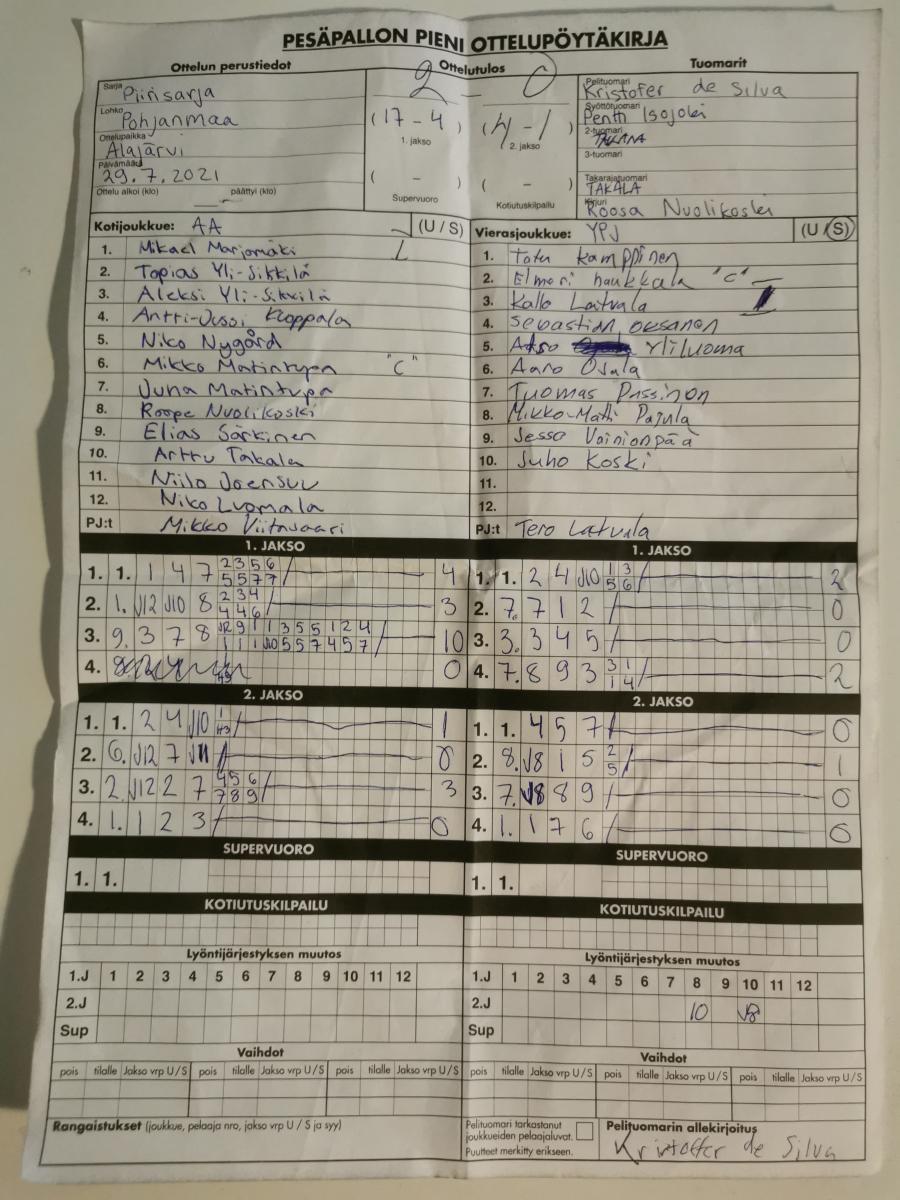 PESÄPALLON PIENI OTTELUPÖYTÄKIRJA
Ottelun perustiedot
Sarja Piirisarja
Lohko Pohjanmaa
Ottelupaikka Alajärvi
Päivämäärä 29.7.2021
Ottelu alkoi (klo) päättyi (klo)
Ottelutulos
2 - 0
(17 - 4) (4 - 1)
1. jakso 2. jakso
( - ) ( - )
Supervuoro Kotiutuskilpailu
Tuomarit
Pelituomari Kristofer de Silva
Syöttötuomari Pentti Isojoki
2-tuomari
3-tuomari
Takarajatuomari TAKALA
Kirjuri Roosa Nuolikoski
Kotijoukkue: AA (U/S)
1. Mikael Marjomäki
2. Topias Yli-Sikkilä
3. Aleksi Yli-Sikkilä
4. Antti-Jussi Kloppala
5. Niko Nygård
6. Mikko Matintupa "C"
7. Juha Matintupa
8. Roope Nuolikoski
9. Elias Särkinen
10. Arttu Takala
11. Niilo Joensuu
12. Niko Luomala
PJ:t Mikko Viitasaari
Vierasjoukkue: YPJ (U/S)
1. Totu Kamppinen
2. Elmeri haukkala "C"
3. Kalle Latvala
4. Sebastian oksanen
5. Yliluoma
6. Aaro Ojala
7. Tuomas
8. Mikko-Matti Pajula
9. Jesse Vainionpää
10. Juho Koski
11.
12.
PJ:t Tero Latvala
1. JAKSO
1. 1. 1 4 7 2 3 5 6 / 4
5 5 7 7
2. 1. J12 J10 8 2 3 4 / 3
4 4 6
3. 9. 3 7 8 J12 9 1 1 3 5 5 1 2 4 / 10
1 1 1 J10 5 5 7 4 5 7
4. 0
1. JAKSO
1. 1. 2 4 J10 1 3 / 2
5 6
2. 7. 7 1 2 / 0
3. 3. 3 4 5 / 0
4. 7. 8 9 3 3 1 / 2
1 4
2. JAKSO
1. 1. 2 4 J10 1 / 1
H3
2. 6. J12 7 J11 / 0
3. 2. J12 2 7 4 5 6 / 3
7 8 9
4. 1. 1 2 3 / 0
2. JAKSO
1. 1. 4 5 7 / 0
2. 8. J8 1 5 2 / 1
5
3. 7. J8 8 9 / 0
4. 1. 1 7 6 / 0
SUPERVUORO
1. 1.
SUPERVUORO
1. 1.
KOTIUTUSKILPAILU
KOTIUTUSKILPAILU
Lyöntijärjestyksen muutos
1.J 1 2 3 4 5 6 7 8 9 10 11 12
2.J
Sup
Lyöntijärjestyksen muutos
1.J 1 2 3 4 5 6 7 8 9 10 11 12
2.J 10 J8
Sup
Vaihdot
pois tilalle Jakso vrp U/S pois tilalle Jakso vrp U/S pois tilalle Jakso vrp U/S
Vaihdot
pois tilalle Jakso vrp U/S pois tilalle Jakso vrp U/S pois tilalle Jakso vrp U/S
Rangaistukset (joukkue, pelaaja nro, jakso vrp U / S ja syy)
Pelituomari tarkastanut
joukkueiden pelaajaluvat.
Puutteet merkitty erikseen.
Pelituomarin allekirjoitus
Kristoffer de Silva